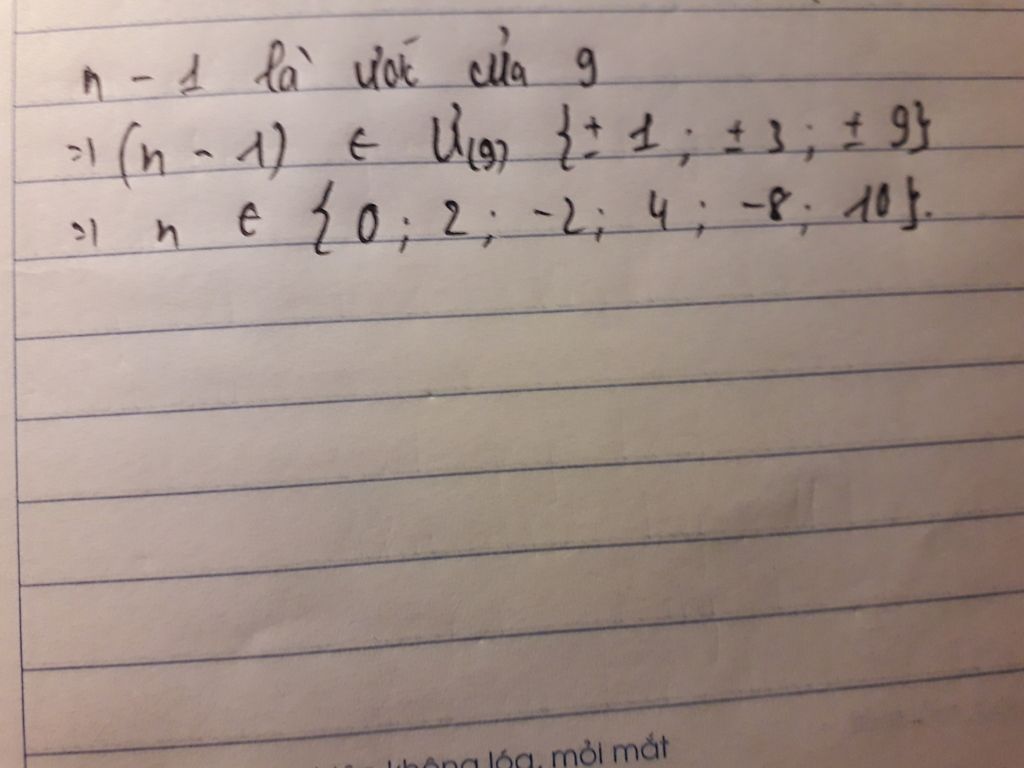 n - 1 là ước của 9
=> (n - 1) ∈ Ư(9) {± 1 ; ± 3 ; ± 9}
=> n ∈ {0 ; 2 ; -2 ; 4 ; -8 ; 10}.
không lóa, mỏi mắt